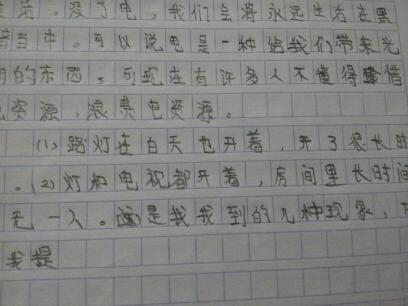 活。没了电，我们会将永远生活在黑
暗当中。可以说电是一种给我们带来光
明的东西。可现在有许多人不懂得珍惜
电资源，浪费电资源。
(1)路灯在白天也开着，开了很长时
。(2)灯和电视都开着，房间里长时间
无一人。这是我找到的几种现象，
我提